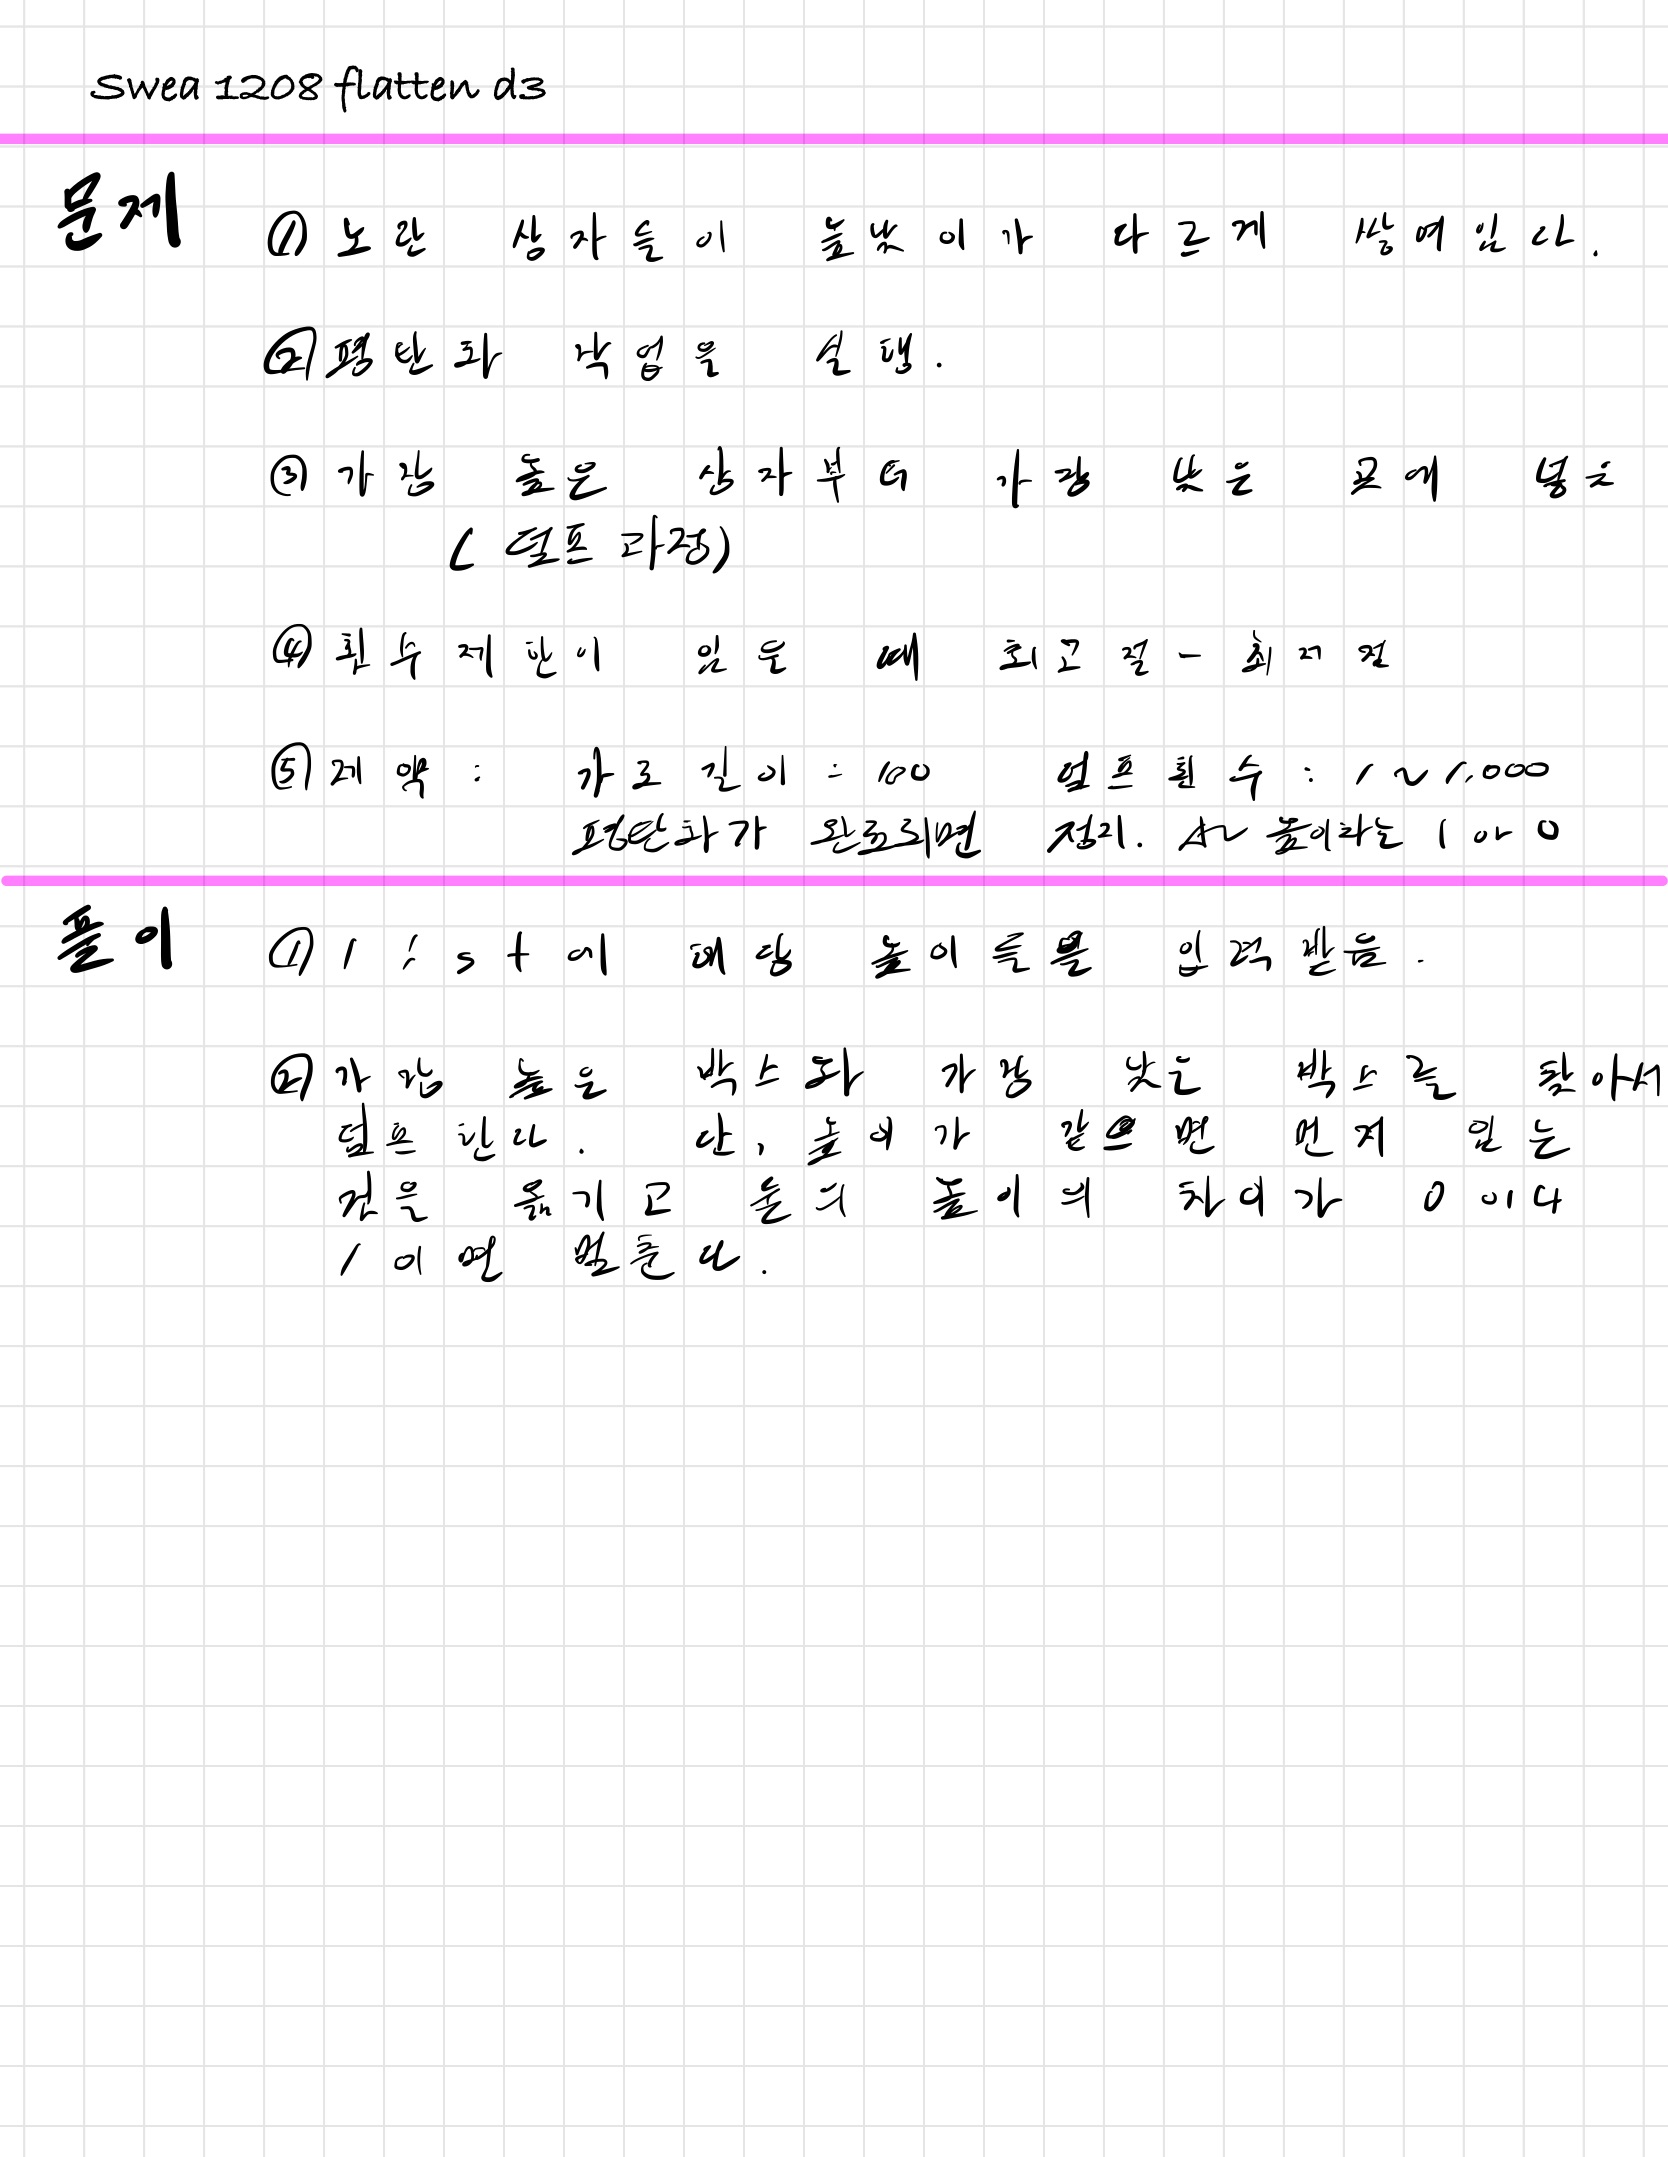 Swea 1208 flatten d3
문제
① 노란 상자들이 높낮이가 다르게 쌓여있다.
② 평탄화 작업을 실행.
③ 가장 높은 상자부터 가장 낮은 곳에 넣는
(덤프 과정)
④ 횟수제한이 있을 때 최고점 - 최저점
⑤ 제약 : 가로길이 : 100 덤프횟수 : 1 ~ 1,000
평탄화가 완료되면 정지. 높이차는 1 or 0
풀이
① list에 해당 높이들을 입력받음.
② 가장 높은 박스와 가장 낮은 박스를 찾아서
덤프한다. 단, 높이가 같으면 먼저 있는
것을 옮기고 둘의 높이의 차이가 0이나
1이면 멈춘다.